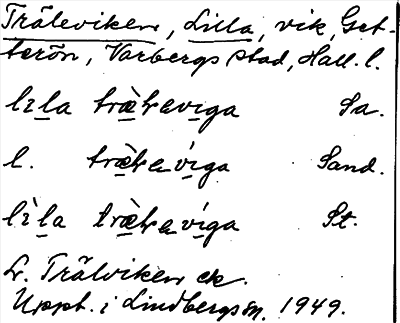 Träleviken, Lilla, vik, Get-
terön, Varbergs stad, Hall. l.
lìla træ̀leviga Sa.
l. træ̀levíga Sand.
lìla træ̀levíga St.
L. Trälviken ek.
Uppt. i Lindbergs sn. 1949.